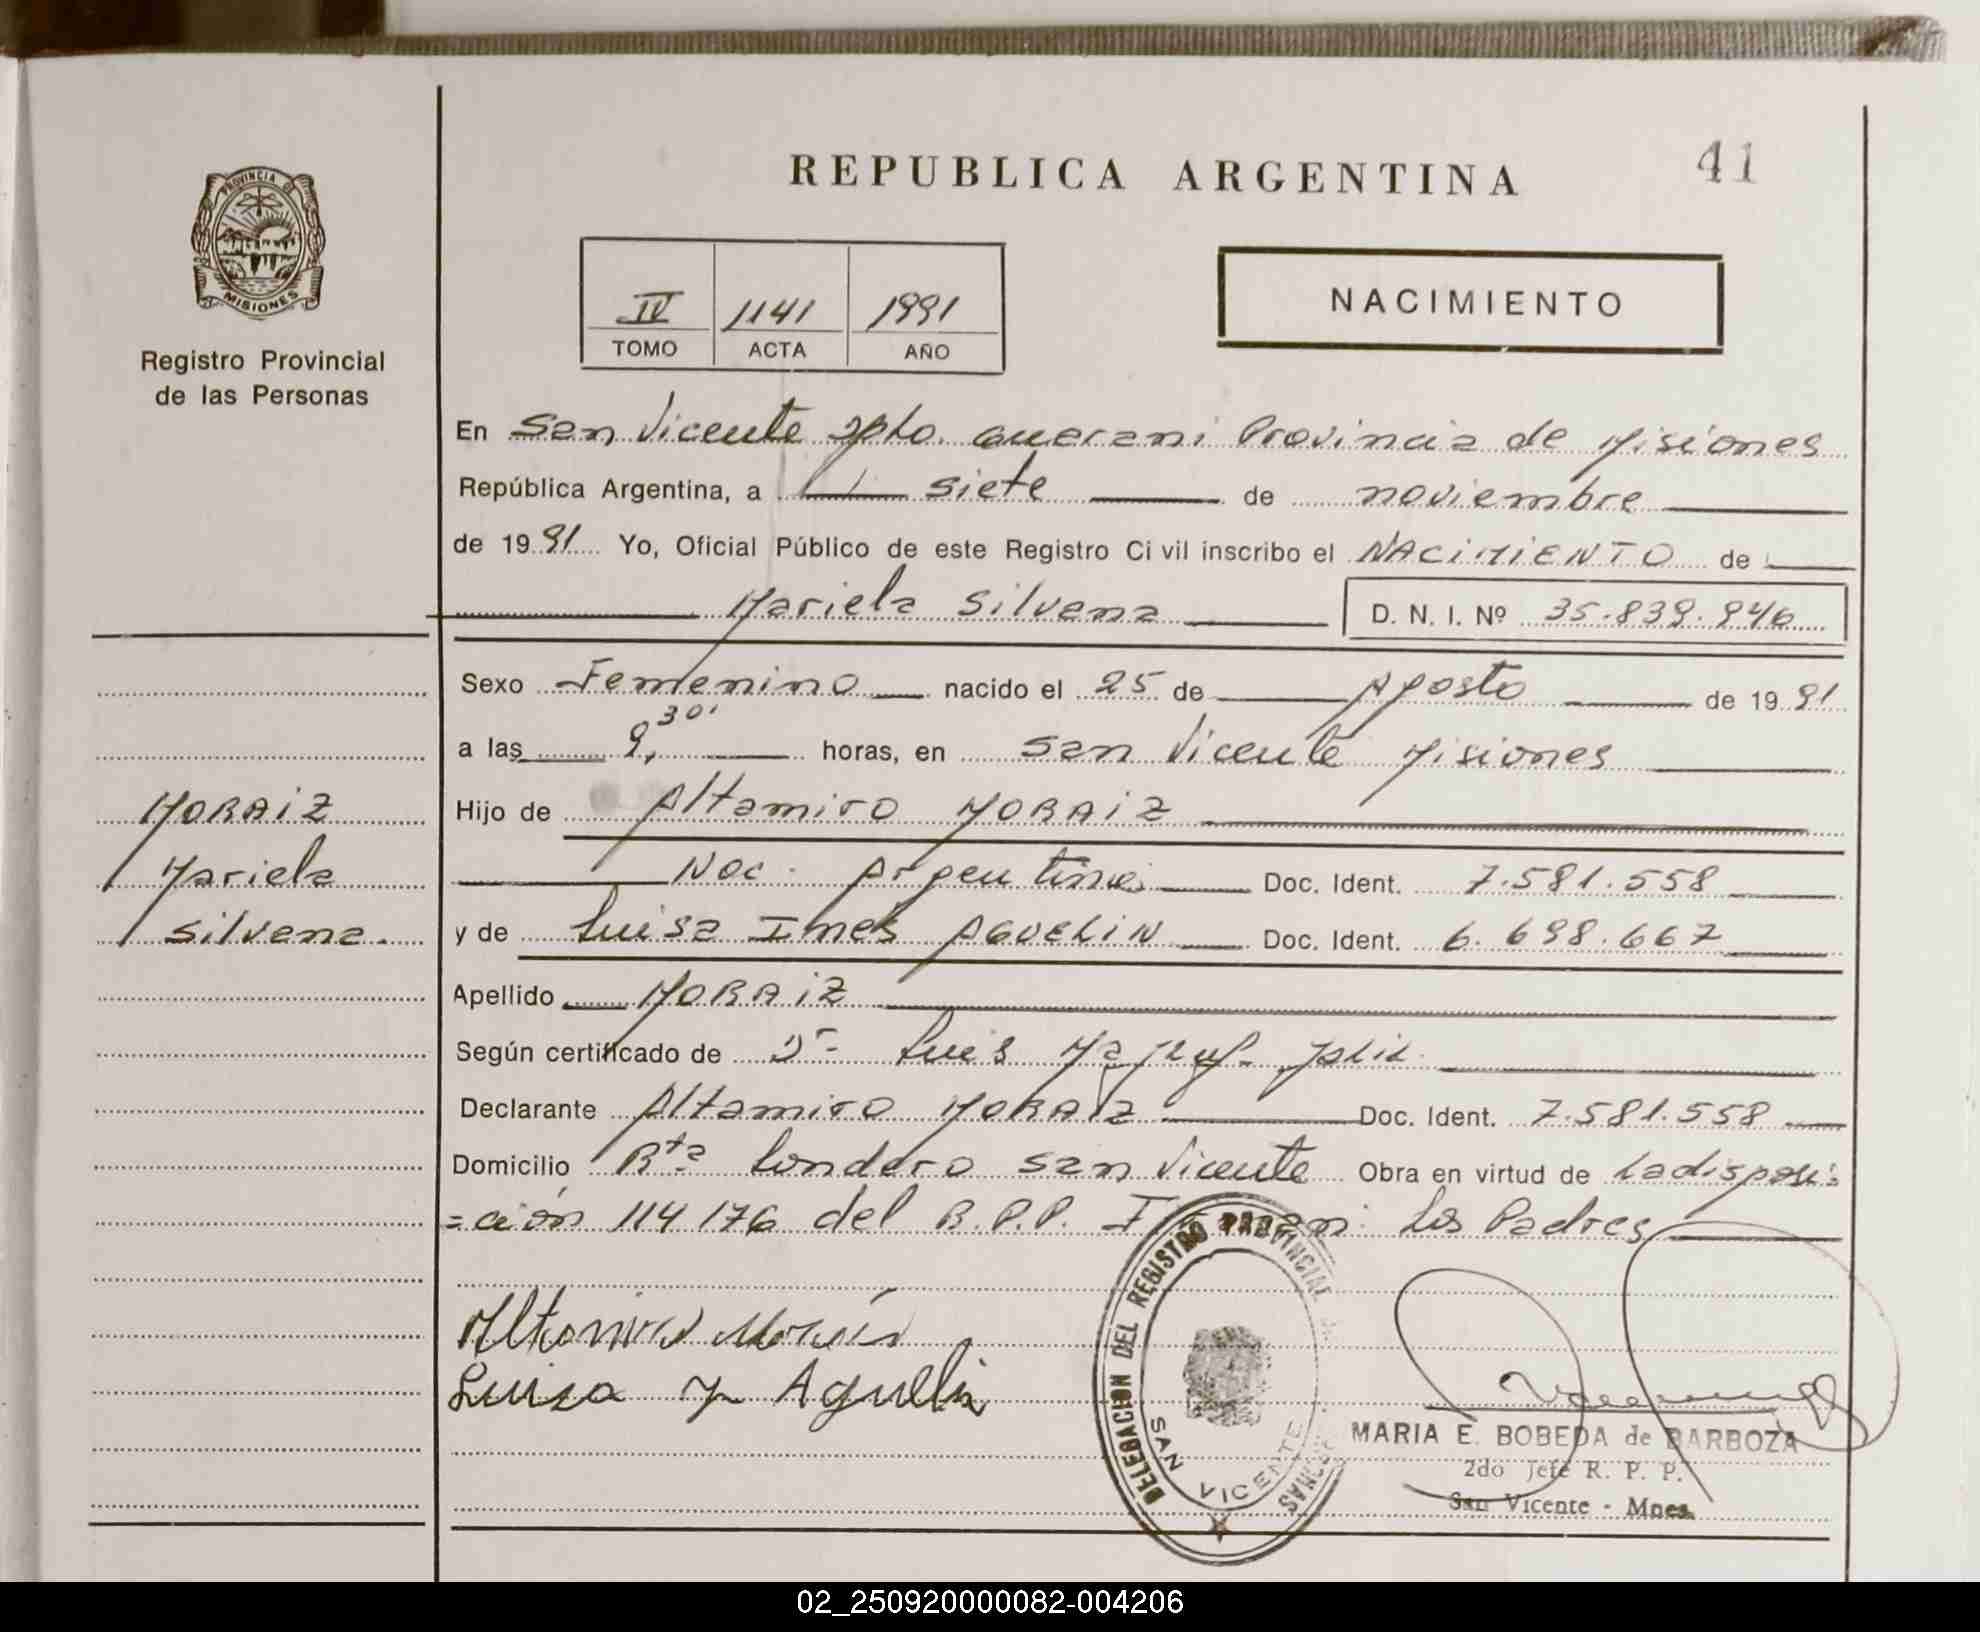 REPUBLICA ARGENTINA
41
PROVINCIA DE
MISIONES
Registro Provincial
de las Personas
IV 1141 1991
TOMO ACTA AÑO
NACIMIENTO
En San Vicente Dpto. Guarani Provincia de Misiones
República Argentina, a siete de noviembre
de 1991 Yo, Oficial Público de este Registro Civil inscribo el NACIMIENTO de
Mariela Silvana D. N. I. Nº 35.839.946
Sexo Femenino nacido el 25 de Agosto de 1991
a las 9,30' horas, en San Vicente Misiones
Hijo de Altamiro MORAIZ
Nac. Argentina Doc. Ident. 7.581.558
y de Luisa Ines AGUELIN Doc. Ident. 6.698.667
Apellido MORAIZ
Según certificado de Dr. Luis
Declarante Altamiro MORAIZ Doc. Ident. 7.581.558
Domicilio Rta Londero San Vicente Obra en virtud de La disposi=
=ción 114176 del R.P.P. Los Padres
MORAIZ
Mariela
Silvana.
Altamiro Morais
Luisa Y Aguelin
DELEGACION DEL REGISTRO PROVINCIAL DE LAS PERSONAS
SAN VICENTE
MARIA E. BOBEDA de BARBOZA
2do Jefe R. P. P.
San Vicente - Mnes.
02_250920000082-004206